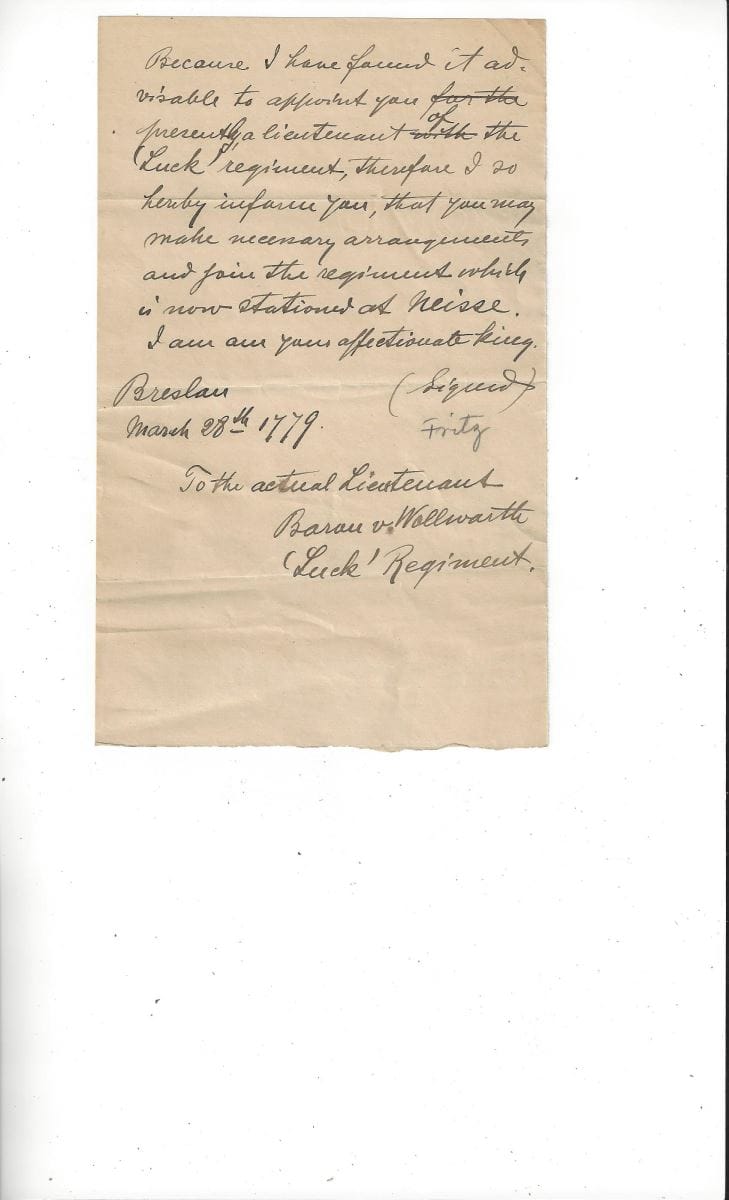 Because I have found it ad-
visable to appoint you for the
of
presently a lieutenant with the
'Luck' regiment, therefore I so
hereby inform you, that you may
make necessary arrangements
and join the regiment which
is now stationed at Neisse.
I am am your affectionate king.
Breslau (Signed)
March 28th 1779. Fritz
To the actual Lieutenant
Baron v. Wollwarth
'Luck' Regiment.